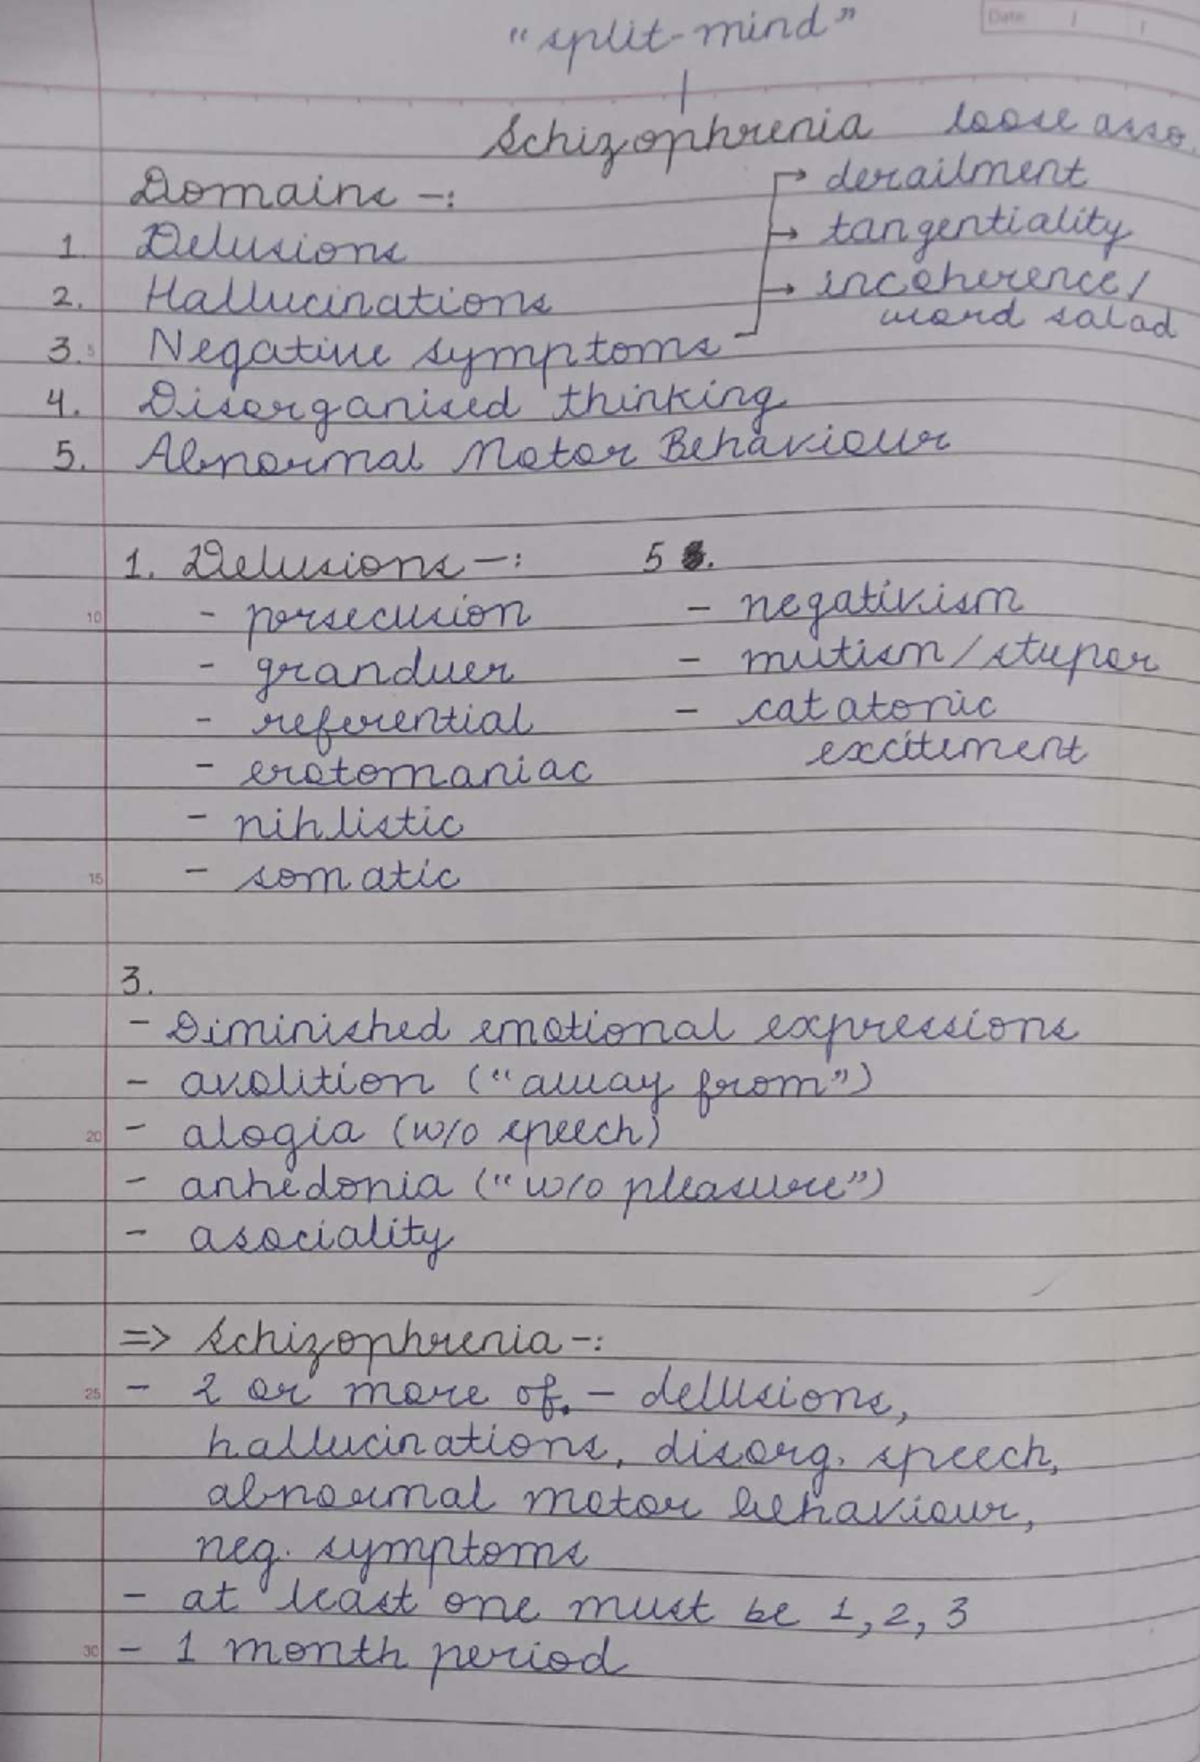 "split-mind"
Date
Schizophrenia loose asso.
Domains -:
→ derailment
→ tangentiality
→ incoherence/
word salad
1. Delusions
2. Hallucinations
3. Negative symptoms
4. Disorganised thinking
5. Abnormal Motor Behaviour
1. Delusions -:
- persecusion
- granduer
- referential
- erotomaniac
- nihlistic
- somatic
5.
- negativism
- mutism/stupor
- catatonic
excitement
3.
- Diminished emotional expressions
- avolition ("away from")
- alogia (w/o speech)
- anhedonia ("w/o pleasure")
- asociality
=> Schizophrenia -:
- 2 or more of. - delusions,
hallucinations, disorg. speech,
abnormal motor behaviour,
neg. symptoms
- at least one must be 1, 2, 3
- 1 month period
5
10
15
20
25
30